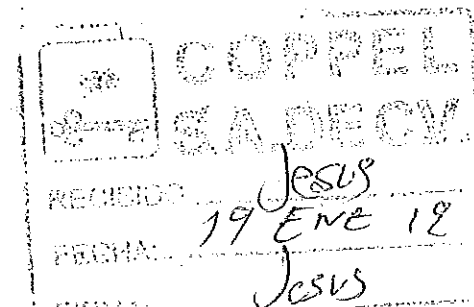 COPPEL
S.A. DE C.V.
RECIBIDO: Jesus
FECHA: 19 ENE 12
Jesus